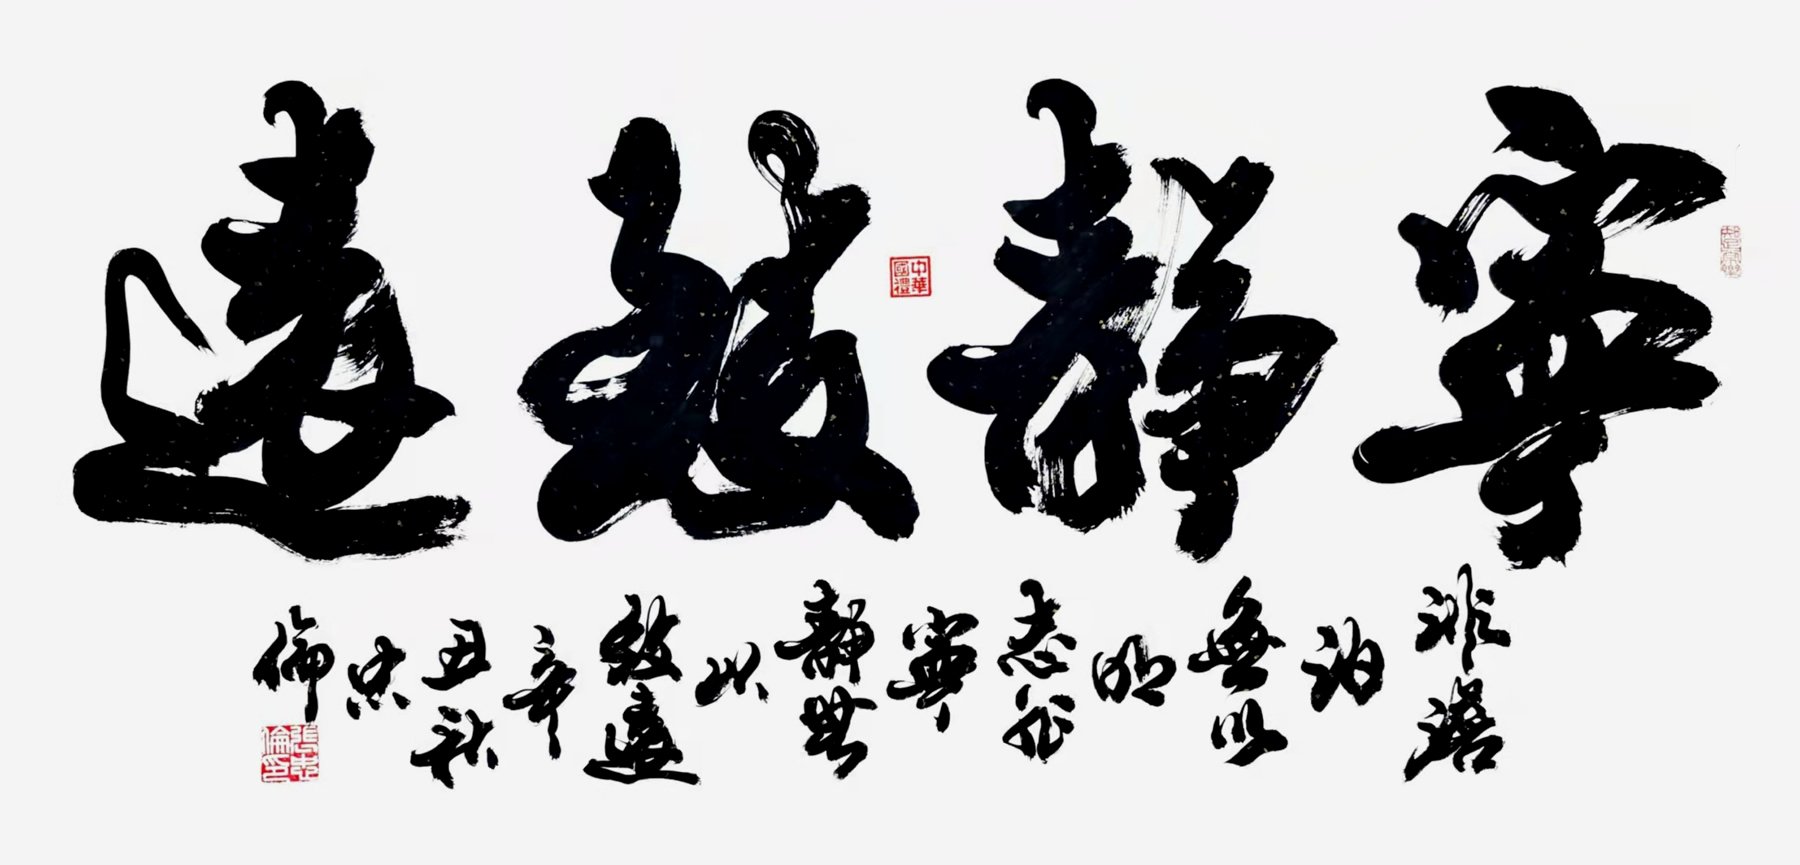 寧靜致遠
非澹泊無以明志非寧靜無以致遠辛丑秋忠倫
中華國禮
張忠倫印